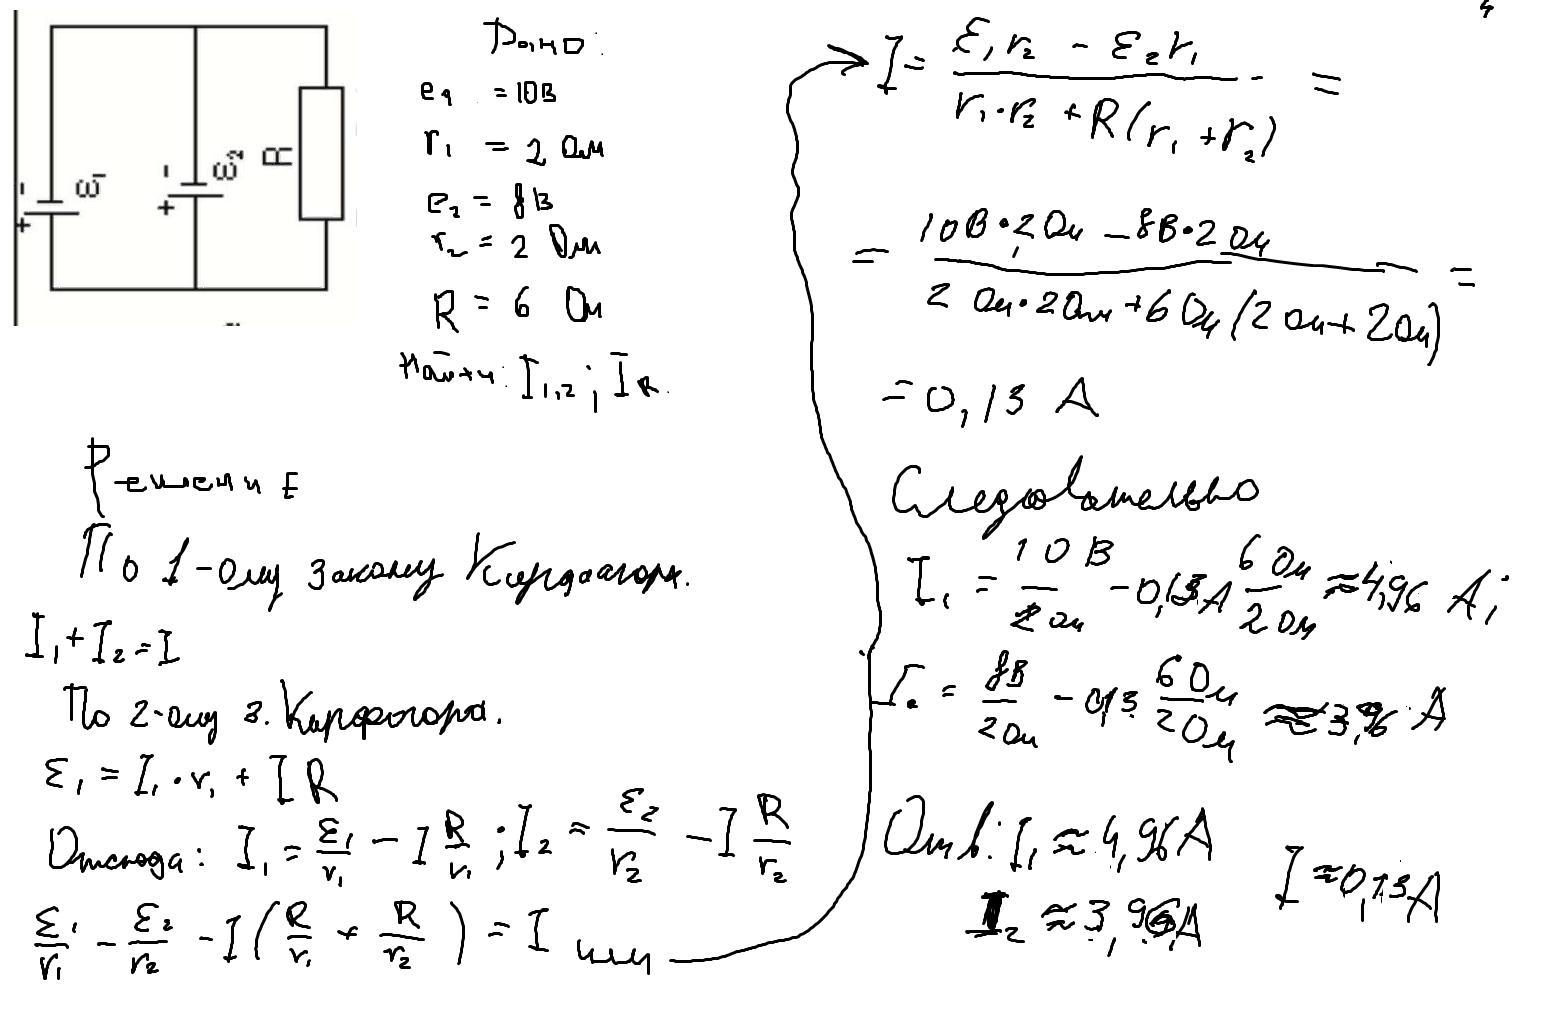 - ε₁
+
- ε₂
+
R
Дано:
e₁ = 10В
r₁ = 2 Ом
e₂ = 8В
r₂ = 2 Ом
R = 6 Ом
Найти: I₁,₂; I_R.
Решение
По 1-ому закону Кирхгофа.
I₁ + I₂ = I
По 2-ому з. Кирхгофа.
ε₁ = I₁·r₁ + IR
Отсюда: I₁ = ε₁/r₁ - I R/r₁; I₂ = ε₂/r₂ - I R/r₂
ε₁/r₁ - ε₂/r₂ - I(R/r₁ + R/r₂) = I или
I = (ε₁r₂ - ε₂r₁)/(r₁·r₂ + R(r₁ + r₂)) =
= (10В·2Ом - 8В·2Ом)/(2 Ом·2Ом + 6Ом(2Ом + 2Ом)) =
= 0,13 А
Следовательно
I₁ = 10В/2Ом - 0,13А 6Ом/2Ом ≈ 4,96 А;
= 8В/2Ом - 0,13 6Ом/2Ом ≈ 3,96 А
Отв: I₁ ≈ 4,96А
I₂ ≈ 3,96А
I ≈ 0,13А